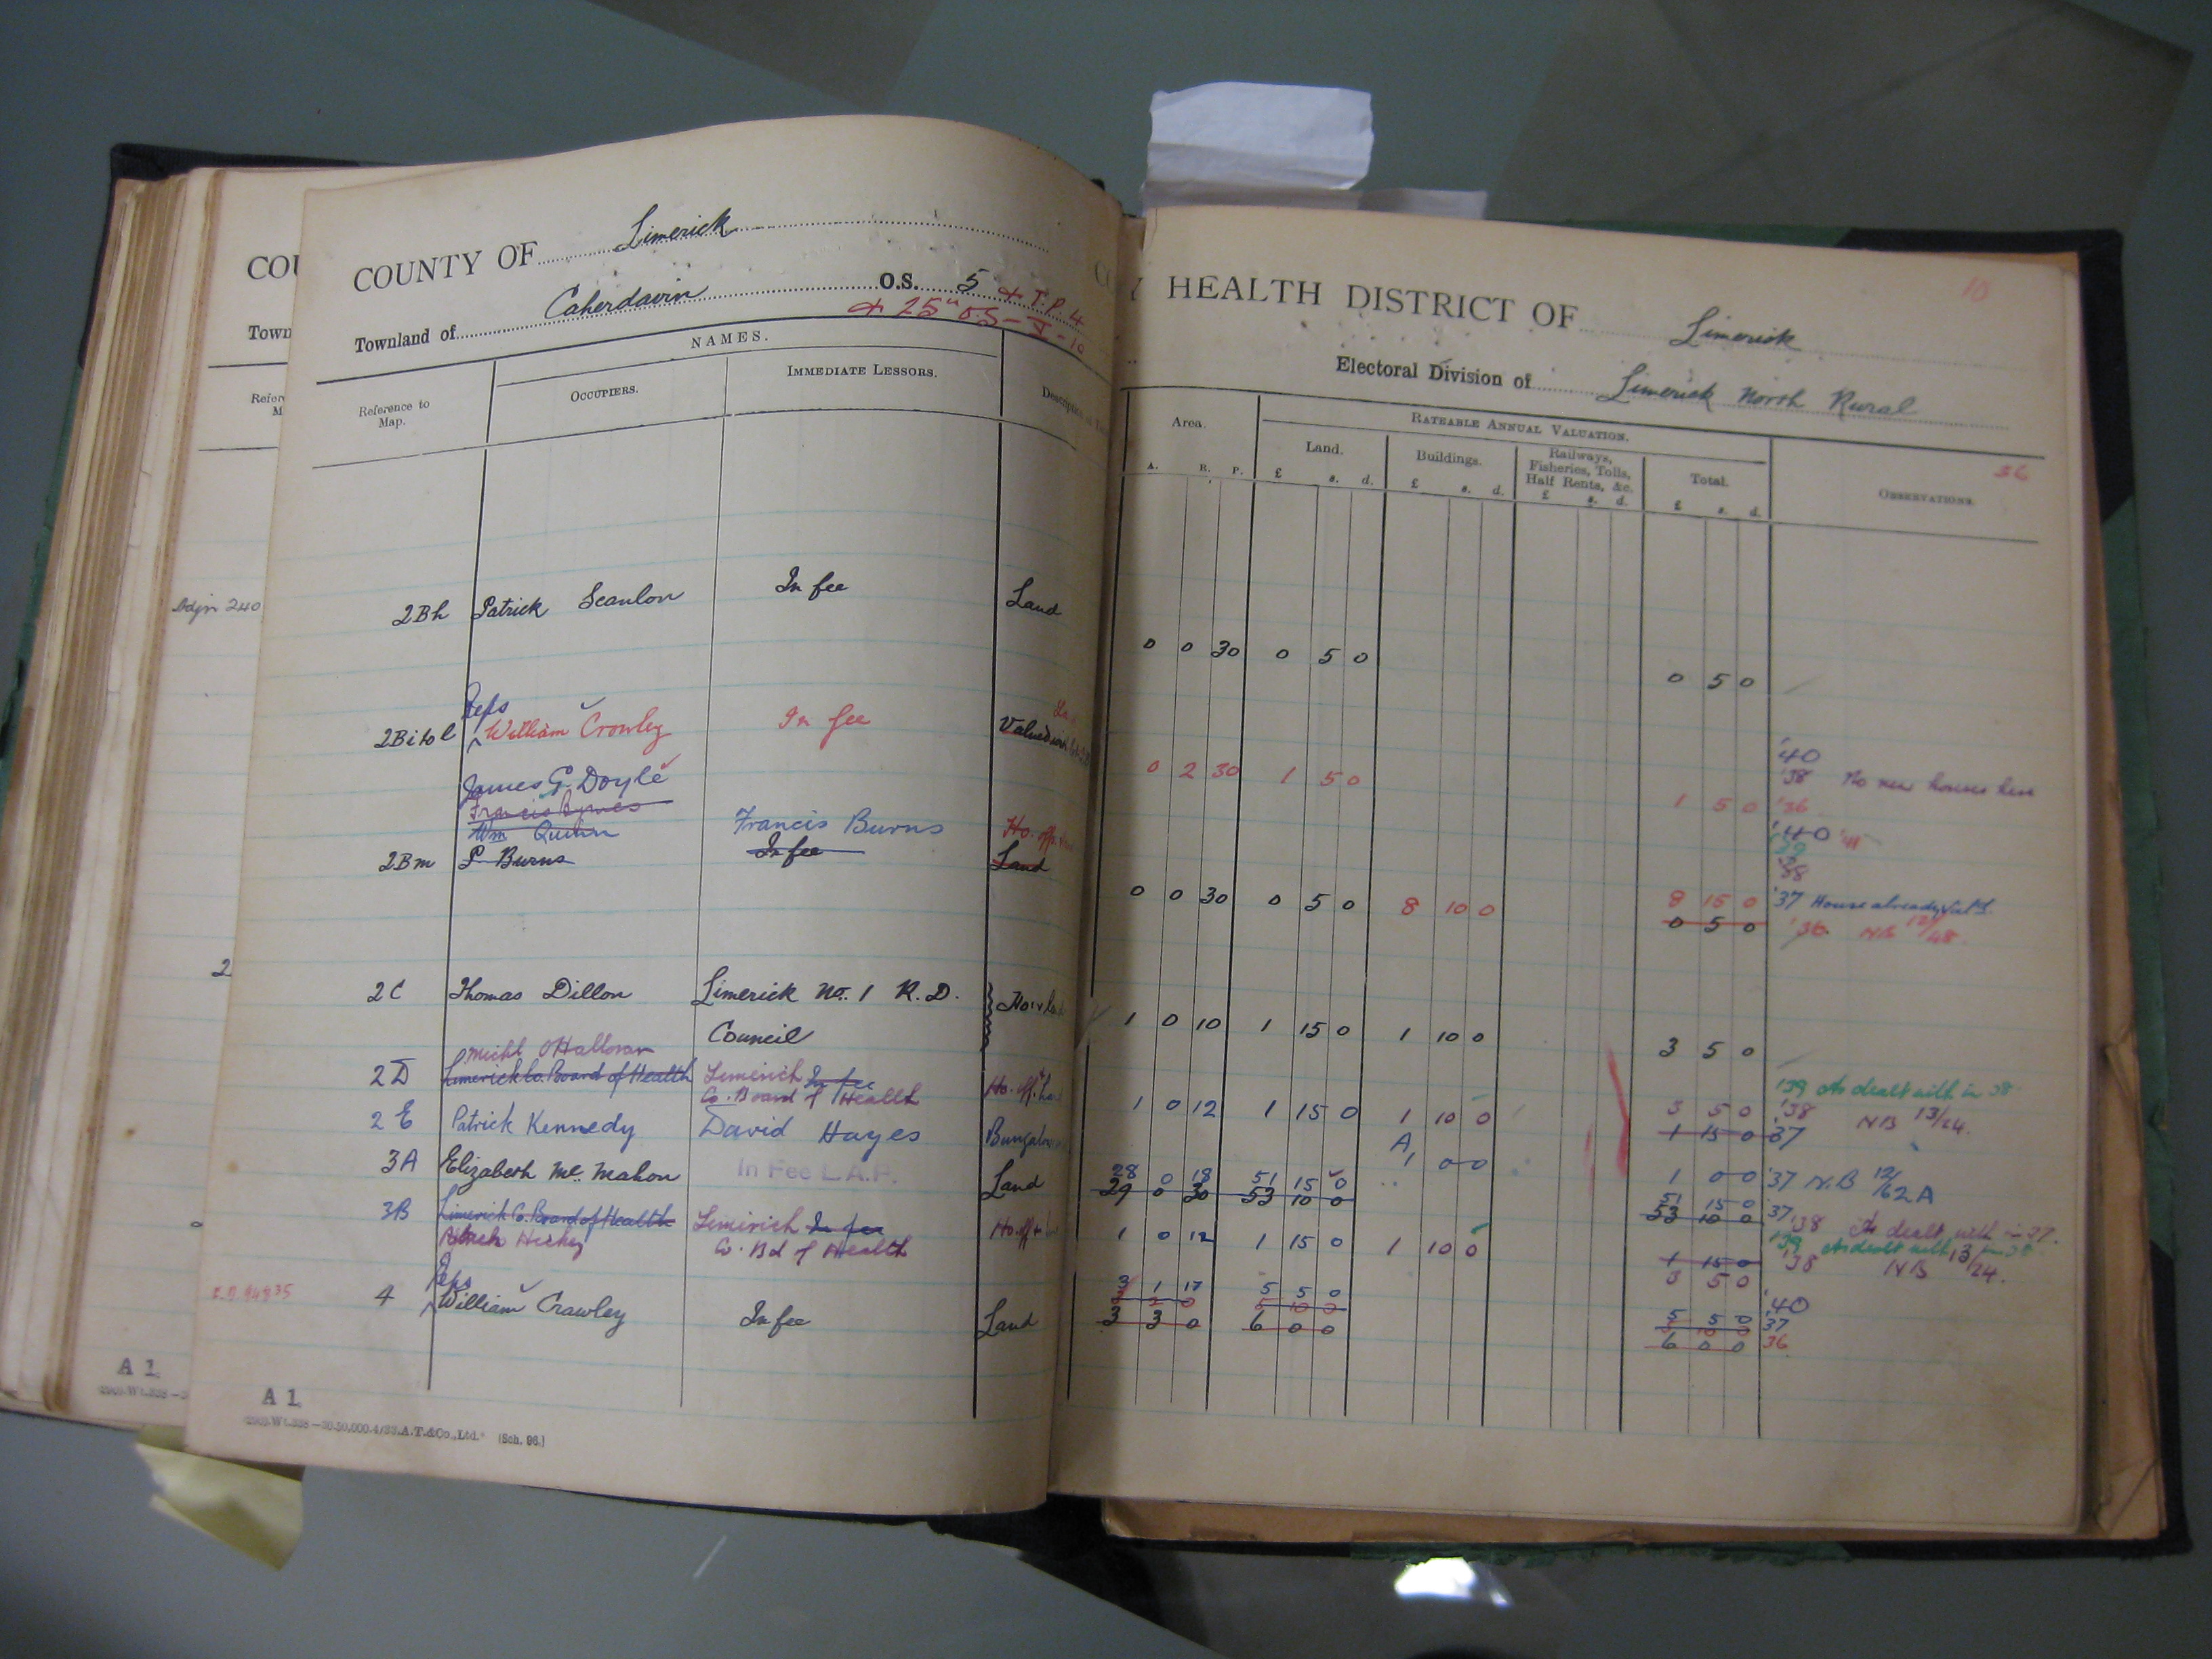 COUNTY OF Limerick
Townland of Caherdavin O.S. 5 + T.P. 4
+ 25" O.S - V - 10
NAMES.
Reference to Map.
OCCUPIERS.
IMMEDIATE LESSORS.
2Bh Patrick Scanlon In fee Land
Reps
2Bitol William Crowley In fee
Valued
James G. Doyle
Francis Byrnes
Wm Quinn Francis Burns Ho. off.
2Bm P Burns In fee Land
2C Thomas Dillon Limerick No. 1 R. D.
Council
Michl O'Halloran
2D Limerick Co. Board of Health Limerick In fee
Co. Board of Health Ho. off.
2E Patrick Kennedy David Hayes Bungalow
3A Elizabeth Mc Mahon In Fee L.A.P. Land
3B Limerick Co. Board of Health Limerick In fee Ho. off
Hickey Co. Bd of Health
Reps
4 William Crawley In fee Land
A 1.
(Sch. 96.)
COU
Town
Refere
M
Adjn 240
2
A 1.
HEALTH DISTRICT OF Limerick
10
Electoral Division of Limerick North Rural
Area.
RATEABLE ANNUAL VALUATION.
Land.
Buildings.
Railways, Fisheries, Tolls, Half Rents, &c.
Total.
OBSERVATIONS.
36
A. R. P. £ s. d. £ s. d. £ s. d. £ s. d.
0 0 30 0 5 0 0 5 0
'40
'38 No new houses here
0 2 30 1 5 0 1 5 0 '36
'40
'39
'38
0 0 30 0 5 0 8 10 0 8 15 0 '37 House already Val'd.
0 5 0 '36. NB 12/48.
1 0 10 1 15 0 1 10 0 3 5 0
'39 As dealt with in 38
1 0 12 1 15 0 1 10 0 3 5 0 '38 NB 13/24.
1 15 0 37
A
1 0 0 1 0 0 '37 N.B 12/62A
28 0 18 51 15 0 51 15 0
29 0 30 53 10 0 53 10 0 37
'38 As dealt with in 37.
'39 As dealt with in 38
1 0 12 1 15 0 1 10 0 1 15 0 '38 NB 13/24.
3 5 0
3 1 17 5 5 0 '40
5 5 0 37
3 3 0 6 0 0 6 0 0 36